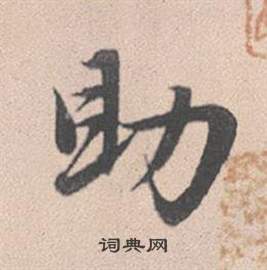 助
词典网